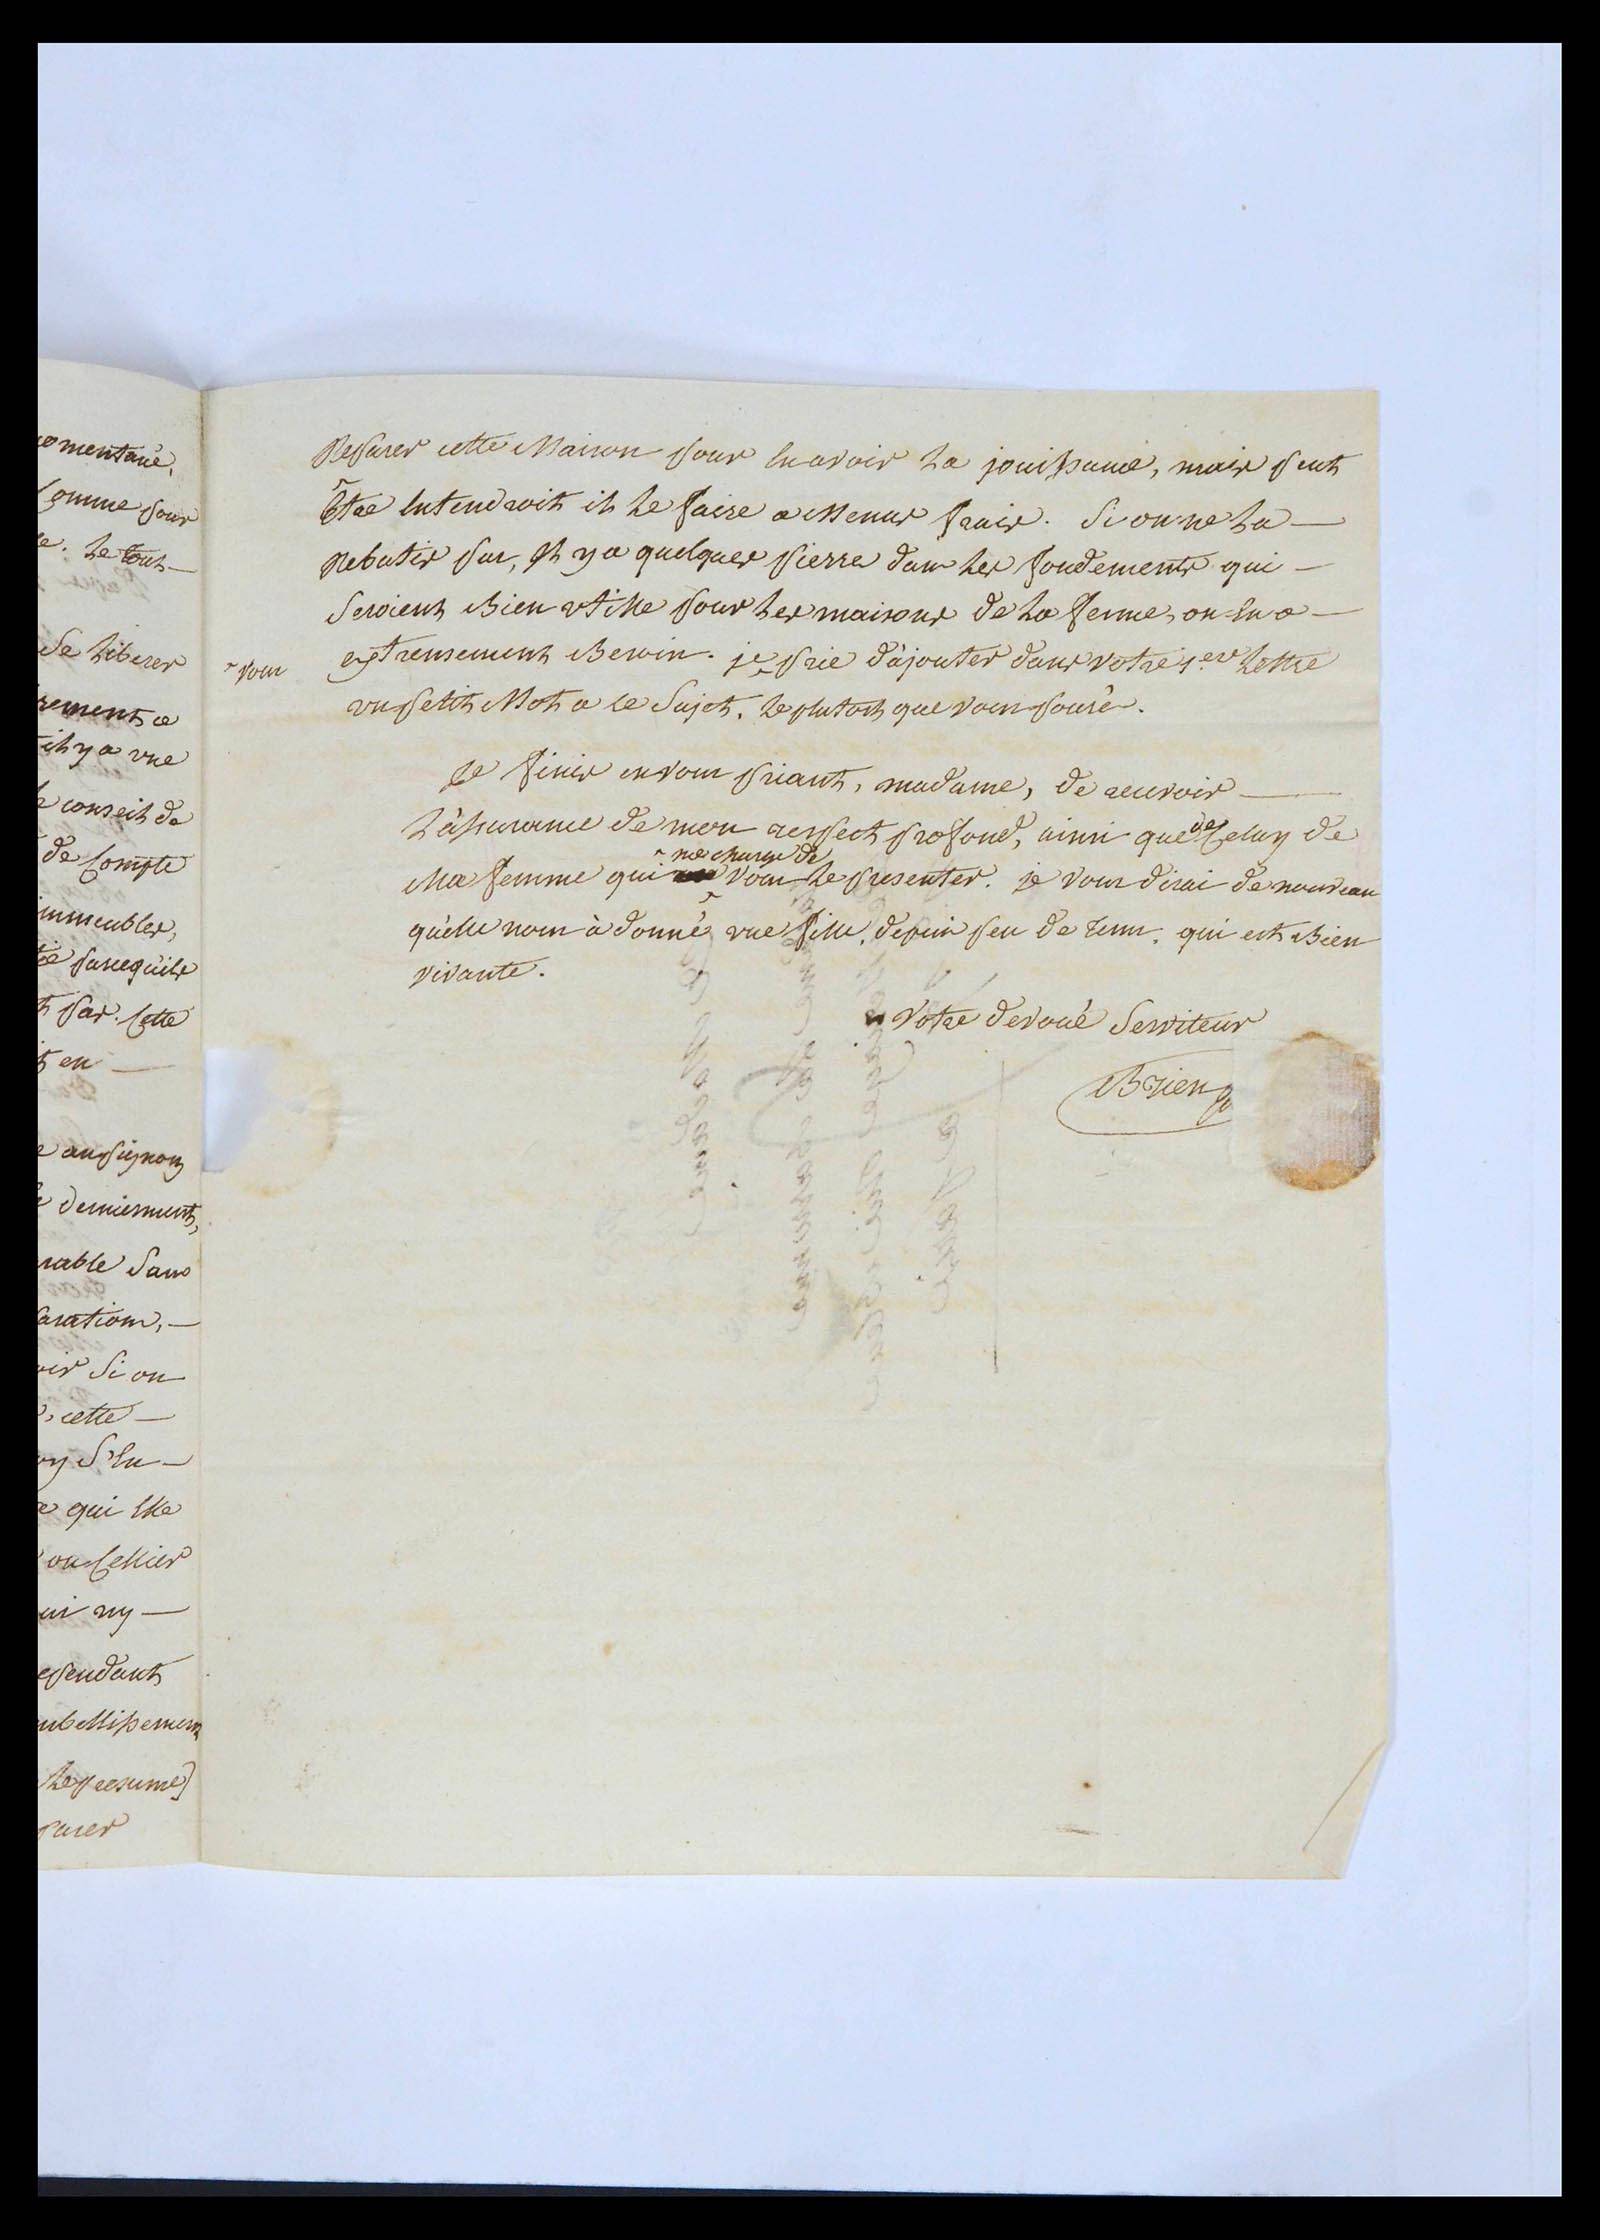 omentané,
Comme pour
e. Le tout —
Se Liberer
rement a
il y a une
Le conseil de
de Compte
immeubles,
parcequ'ils
t par. Cette
t en —
derniement,
rable Sans
parations, —
oir Si on
, cette —
oy S'En —
e qui Elle
ou Cellier
ui ny —
ependant
mbellissemens
Le presume]
parer
Reparer cette Maison pour En avoir La jouissance, mais peut
Être Entendroit il Le faire a Menus frais. Si on ne La —
Rebatis pas, Il y a quelques pierre dans Les fondements qui —
Seroient Bien utille pour Les maisons de La ferme, on En a —
extrensement Besoin. je ^ prie d'ajouter dans votre 1.ere Lettre
^ vous
un petit Mot a ce Sujet, Le plutost que vous pouré.
Je finis en vous priant, madame, de recevoir —
L'assurance de mon respect profond, ainsi que de Celuy de
Ma femme qui ^ me charge de vous Le presenter. je vous dirai de nouveau
qu'elle nous à donné une fille, depuis peu de tems, qui est Bien
vivante.
Votre devoué Serviteur
Brien